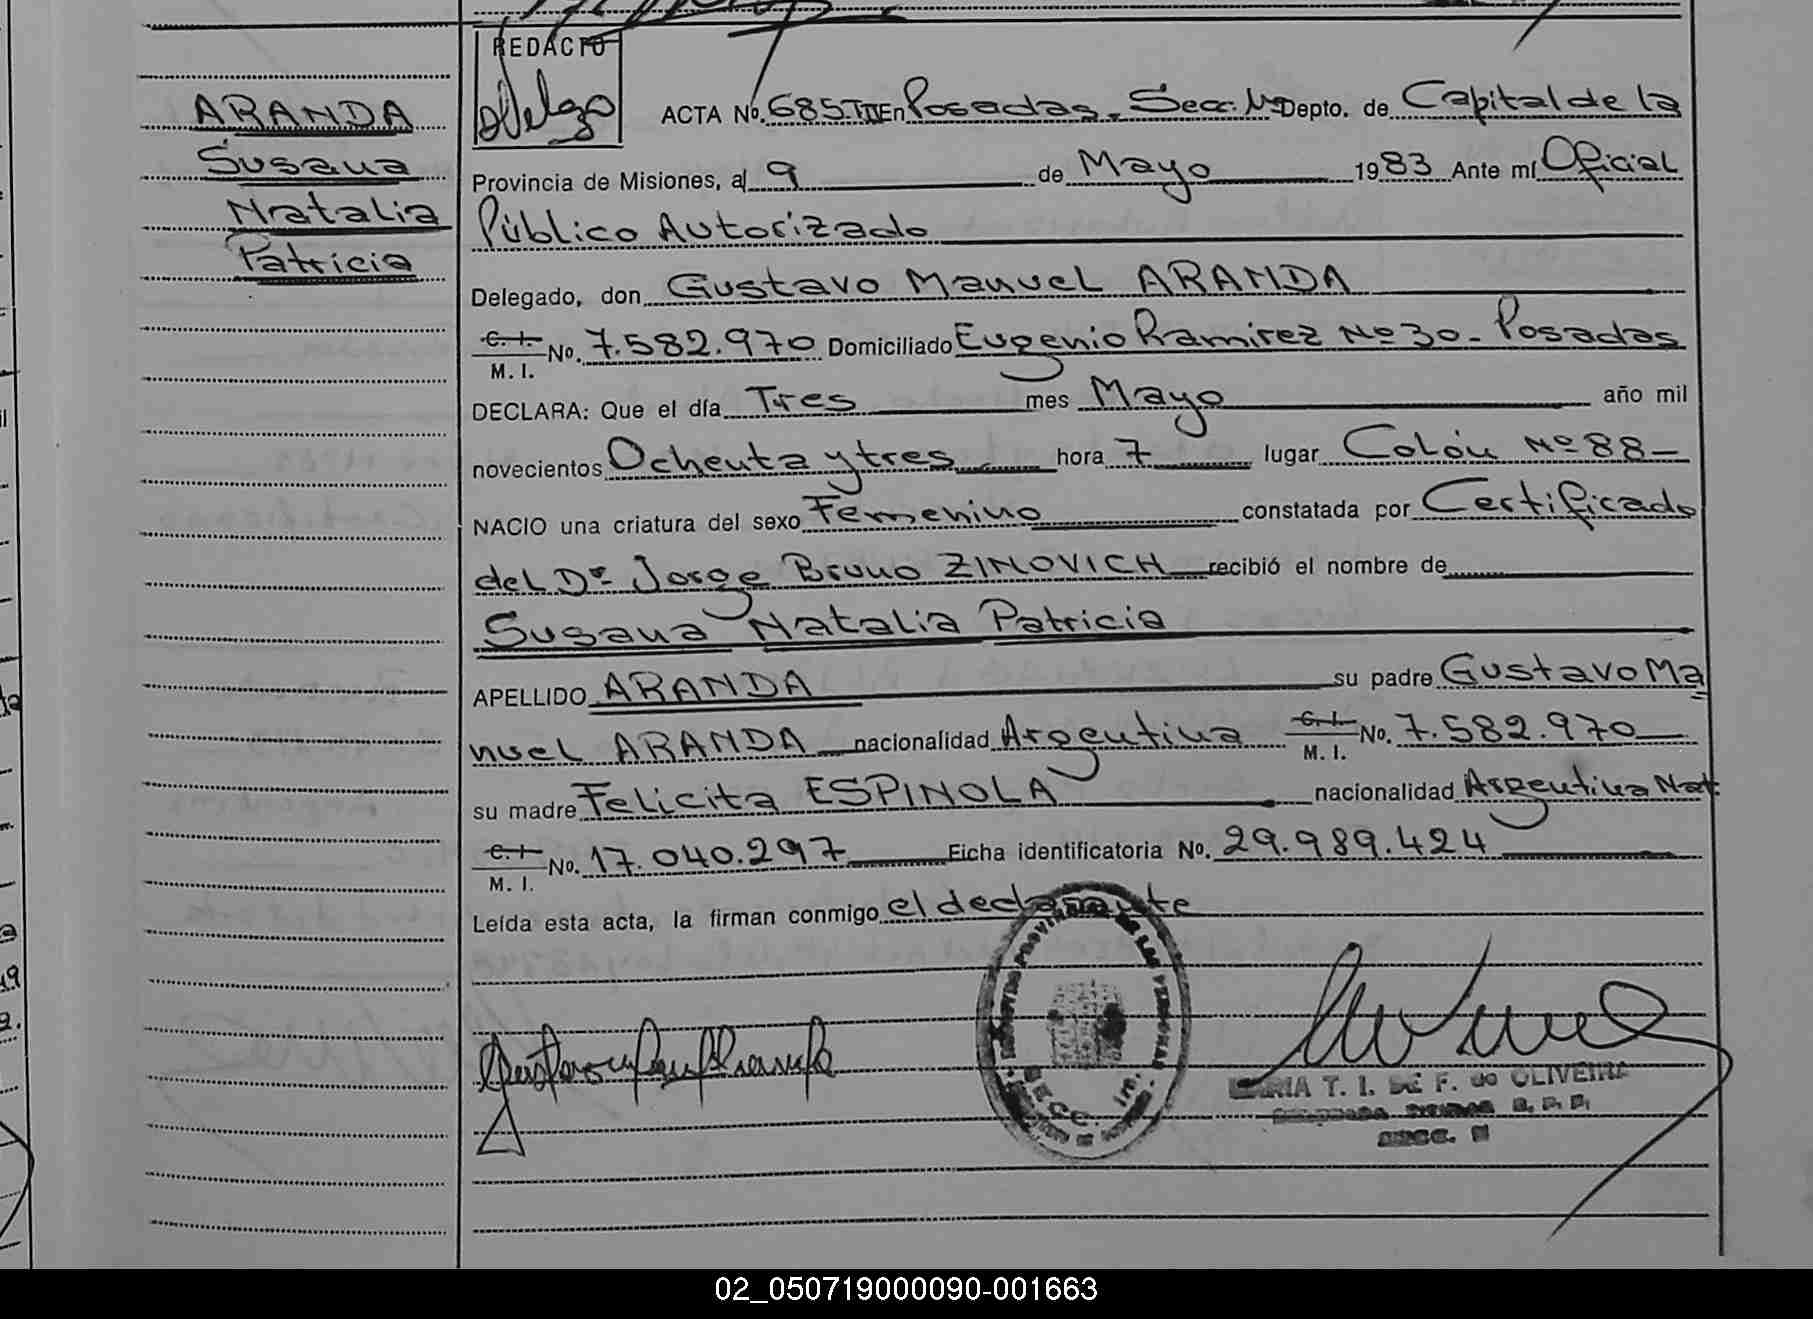 REDACTO
ARANDA
Susana
Natalia
Patricia
ACTA No. 685 TII En Posadas. Secc. Depto. de Capital de la
Provincia de Misiones, al 9 de Mayo 1983 Ante mí Oficial
Público Autorizado
Delegado, don Gustavo Manuel ARANDA
C. I. M. I. No. 7.582.970 Domiciliado Eugenio Ramirez Nº 30 - Posadas
DECLARA: Que el día Tres mes Mayo año mil
novecientos Ochenta y tres hora 7 lugar Colón Nº 88 -
NACIO una criatura del sexo Femenino constatada por Certificado
del Dr. Jorge Bruno ZINOVICH recibió el nombre de
Susana Natalia Patricia
APELLIDO ARANDA su padre Gustavo Ma
nuel ARANDA nacionalidad Argentina C. I. M. I. No. 7.582.970
su madre Felicita ESPINOLA nacionalidad Argentina Nat
C. I. M. I. No. 17.040.297 Ficha identificatoria No. 29.989.424
Leída esta acta, la firman conmigo el declarante
PROVINCIAL DE LAS PERSONAS
SECC.
MARIA T. I. DE F. de OLIVEIRA
02_050719000090-001663